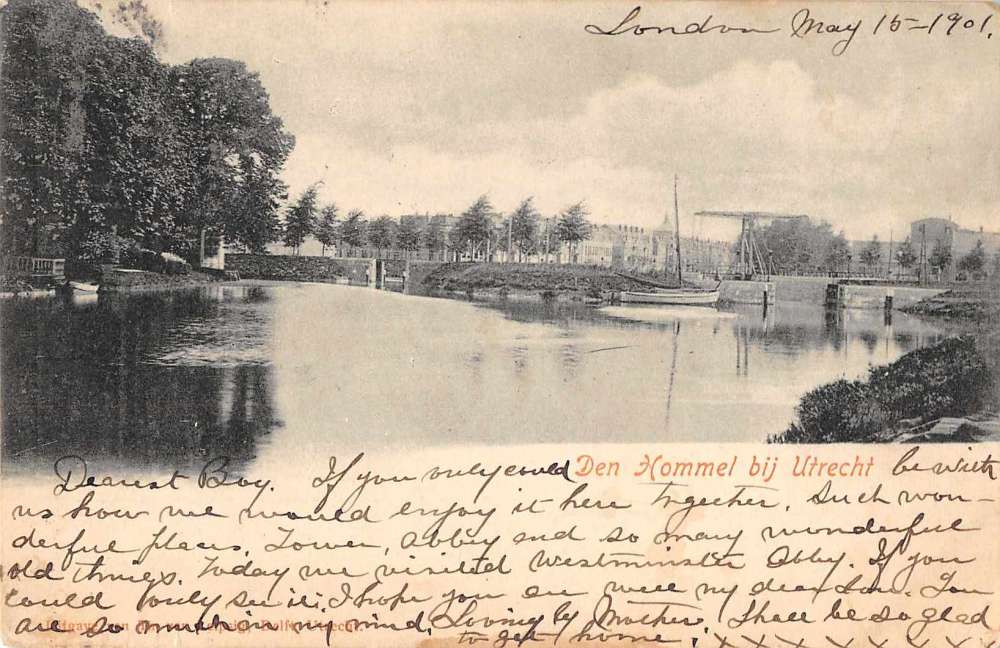 London May 15-1901.
Dearest Boy. If you only could be with
Den Hommel bij Utrecht
us how we would enjoy it here together, Such won-
derful places, Tower, Abbey and so many wonderful
old things. Today we visited Westminster Abby. If you
could only see it. I hope you are well my dear Son. You
are so much in my mind, Lovingly Mother, Shall be so glad
to get home.
x x x x x x x x
Utrecht.